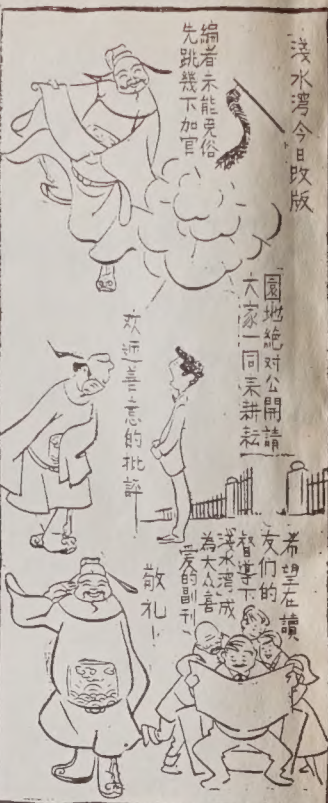 淺水湾今日改版
編者未能免俗
先跳幾下加官
「園地絶对公開請
大家一同来耕耘
欢迎善意的批評
希望在讀
友们的
督導下
淺水灣」成
為大众喜
爱的副刊、
敬礼！